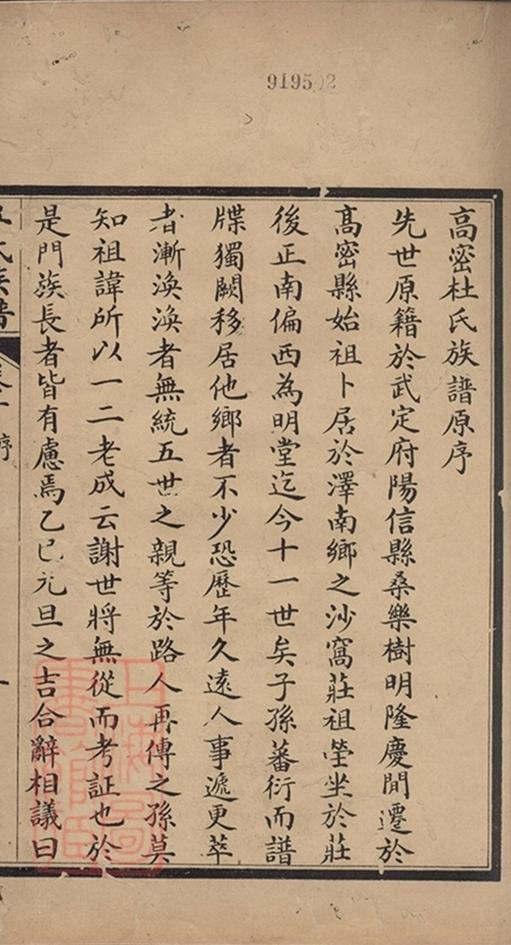 919502
高密杜氏族譜原序
先世原籍於武定府陽信縣桑樂樹明隆慶間遷於
髙密縣始祖卜居於澤南鄉之沙窩莊祖塋坐於莊
後正南偏西為明堂迄今十一世矣子孫蕃衍而譜
牒獨闕移居他鄉者不少恐歷年久遠人事遞更萃
者漸渙渙者無統五世之親等於路人再傳之孫莫
知祖諱所以一二老成云謝世將無從而考証也於
是門族長者皆有慮焉乙巳元旦之吉合辭相議曰
氏族譜
序
一